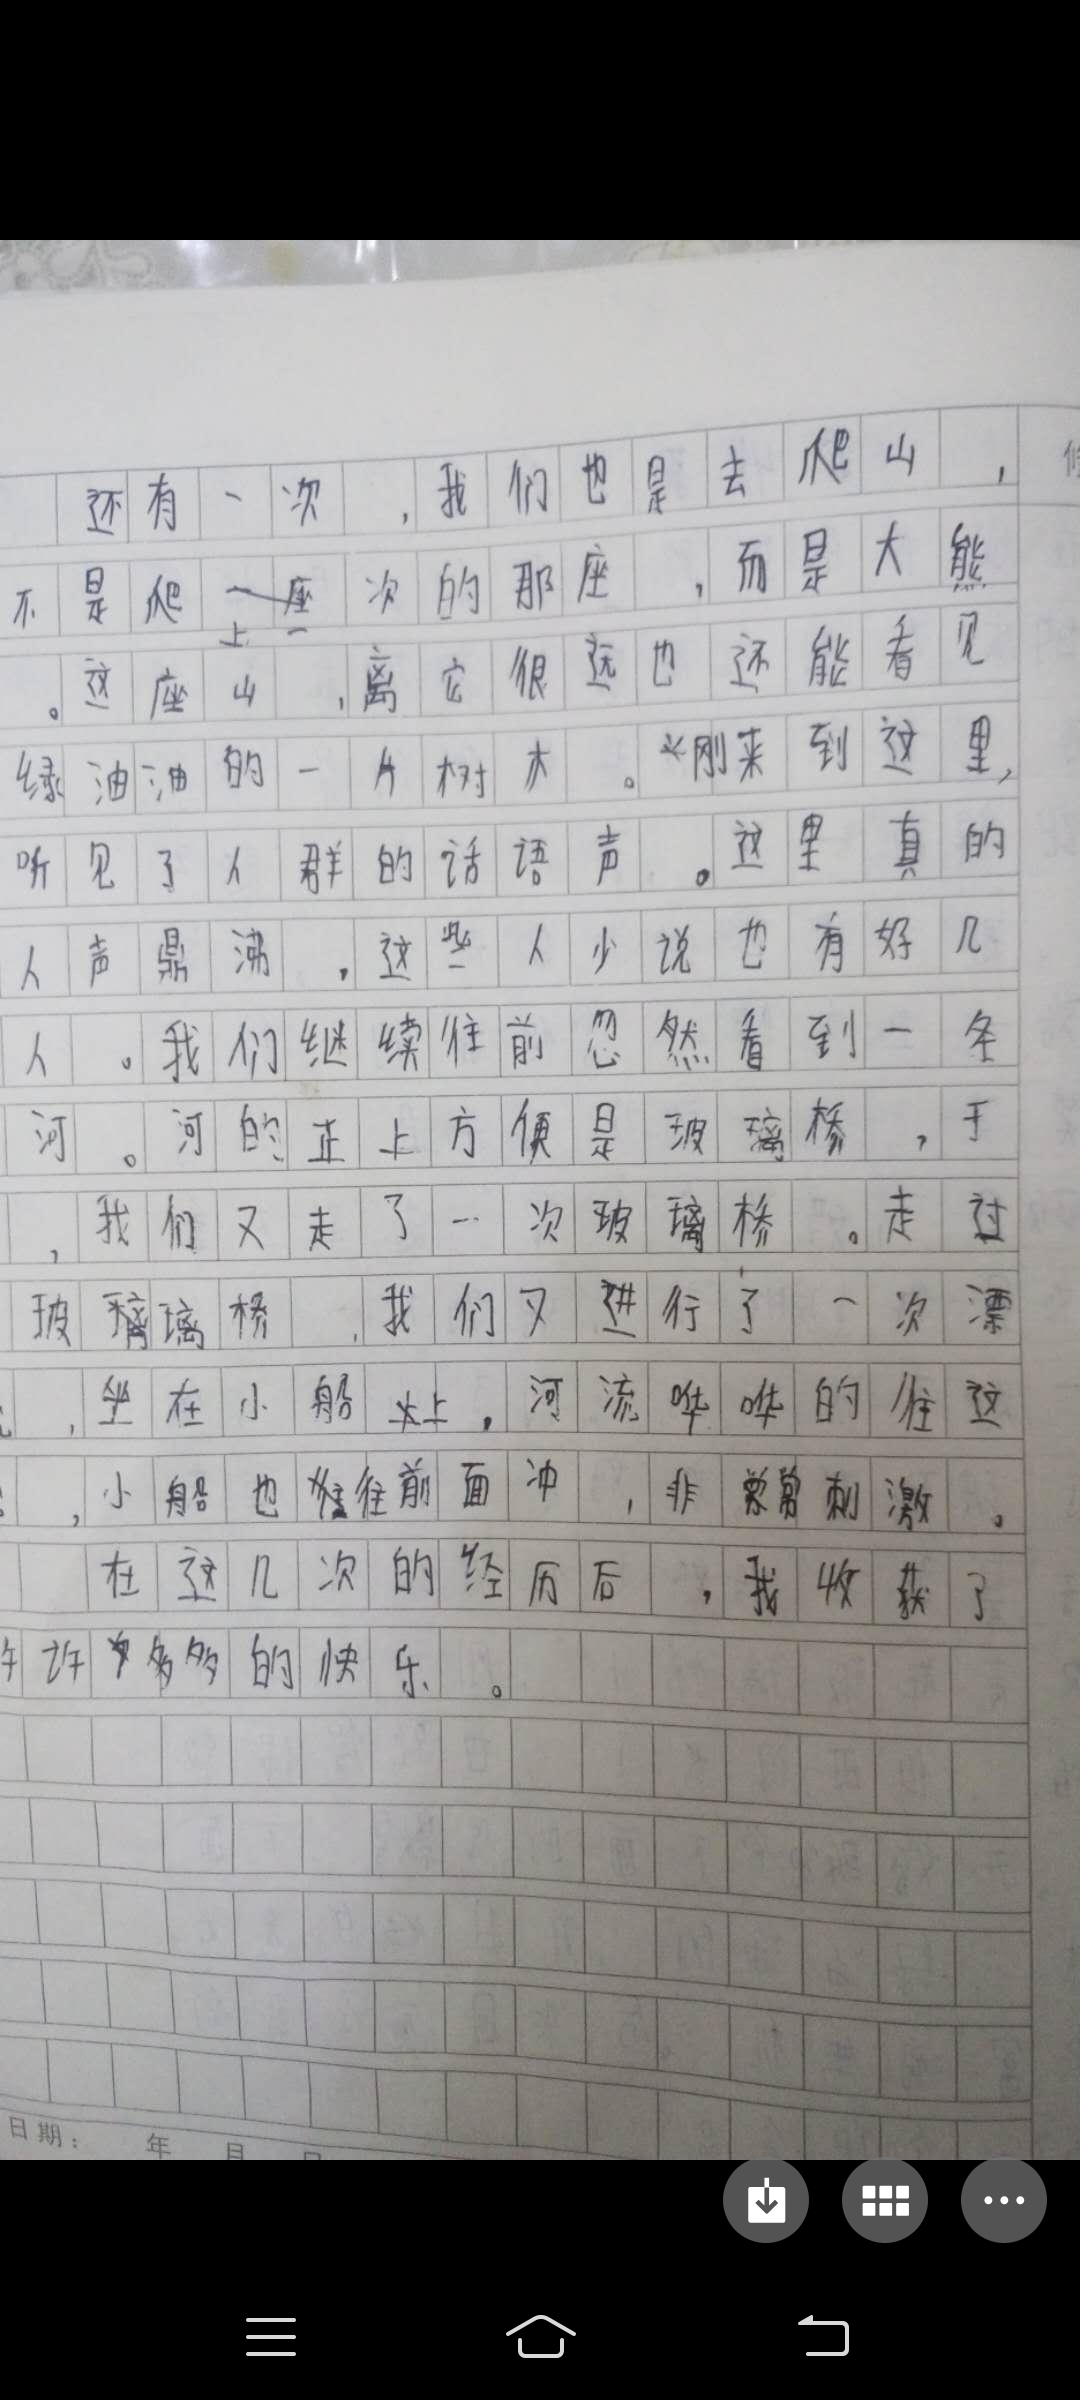 还有一次,我们也是去爬山,
不是爬上一次的那座,而是大熊
。这座山,离它很远也还能看见
绿油油的一片树木。刚来到这里,
听见了人群的话语声。这里真的
人声鼎沸,这些人少说也有好几
人。我们继续往前忽然看到一条
河。河的正上方便是玻璃桥,于
,我们又走了一次玻璃桥。走过
玻璃桥,我们又进行了一次漂
,坐在小船上,河流哗哗的往这
,小船也往前面冲,非常刺激。
在这几次的经历后,我收获了
许许多多的快乐。
日期: 年 月 日